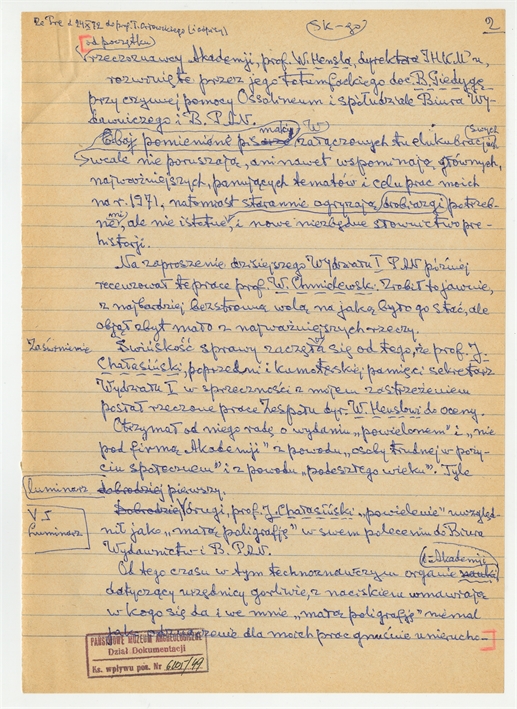 2
Sk-go
od początku
rzeczoznawcy Akademji, prof. W. Hensla, dyrektora IHKM'u,
rozwinięte przez jego totumfackiego doc. B. Giedygę
przy czynnej pomocy Ossolineum i spółudziale Biura Wy-
dawniczego i B. PAN.
Obaj pomienieni w załączonych tu elukubracjach
swych
wcale nie poruszają, ani nawet wspominają głównych,
najważniejszych, panujących tematów i celu prac moich
na r. 1971, natomiast starannie ogryzają drobiazgi potrzeb-
ne, ale nie istotne, i nowe niezbędne słownictwo pre-
historji.
Na zaproszenie dzisiejszego Wydziału I PAN później
recenzował te prace prof. W. Chmielewski. Zrobił to jawnie,
z najbardziej bezstronną wolą na jaką było go stać, ale
objął zbyt mało z najważniejszych rzeczy.
Zaświnienie
Świńskość sprawy zaczęła się od tego, że prof. J.
Chałasiński, poprzedni i kumoterskiej pamięci sekretarz
Wydziału I w sprzeczności z mojem zastrzeżeniem
posłał rzeczone prace Zespołu dyr. W. Henslowi do oceny.
Otrzymał od niego radę o wydaniu „powielonem" i „nie
pod firmą Akademji" z powodu „osoby trudnej w poży-
ciu społecznem" i z powodu „podeszłego wieku". Tyle
luminarz dobrodziej pierwszy.
luminarz
Dobrodziej drugi, prof. J. Chałasiński „powielenie" uwzględ-
nił jako „małą poligrafję" w swem poleceniu do Biura
Wydawnictw i B. PAN.
Akademji
Od tego czasu w tym technoznawczym organie nauki
dotyczący urzędnicy gorliwie, z naciskiem wmawiają
w kogo się da i we mnie „małą poligrafję" niemal
dla moich prac gnuśnie unierucho-
PAŃSTWOWE MUZEUM ARCHEOLOGICZNE
Dział Dokumentacji
Ks. wpływu poz. Nr